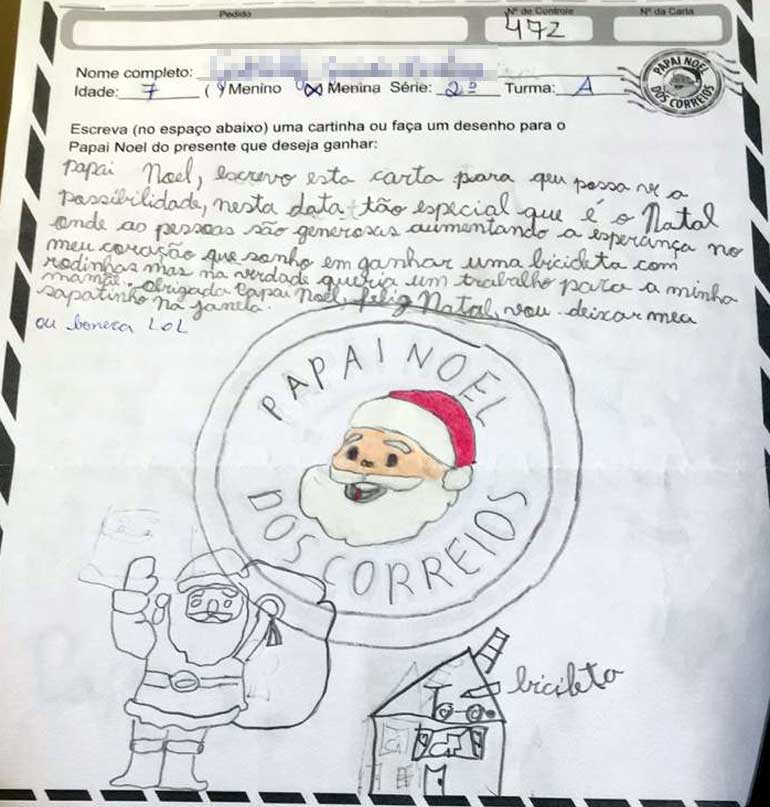 Pedido
Nº de Controle
Nº da Carta
472
Nome completo:
Idade: 7 ( ) Menino (x) Menina Série: 2º Turma: A
PAPAI NOEL
DOS CORREIOS
Escreva (no espaço abaixo) uma cartinha ou faça um desenho para o
Papai Noel do presente que deseja ganhar:
papai Noel, escrevo esta carta para qeu possa ve a
possibilidade, nesta data tão especial que é o Natal
onde as pessoas são generosas aumentando a esperança no
meu coração que sonho em ganhar uma bicicleta com
rodinhas mas na verdade queria um trabalho para a minha
mamãe. Obrigada Papai Noel, feliz Natal, vou deixar meu
sapatinho na janela.
ou boneca LOL
PAPAI NOEL
DOS CORREIOS
bicicleta